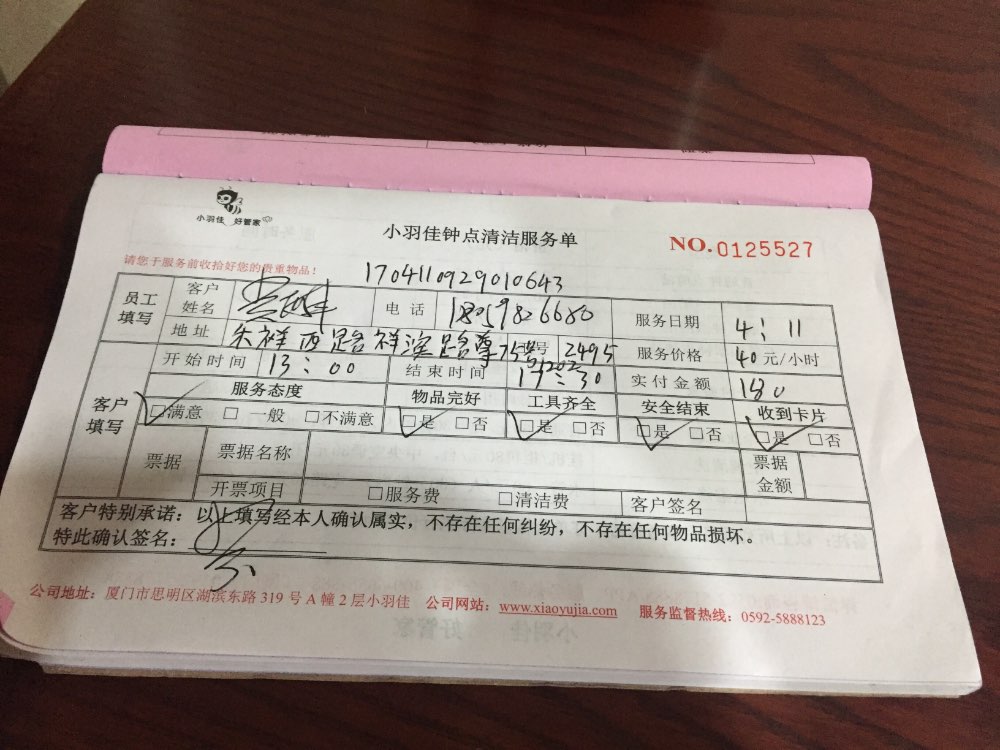 小羽佳 好管家
小羽佳钟点清洁服务单
NO.0125527
请您于服务前收拾好您的贵重物品！
1704110929010643
员工填写 客户姓名 电话 18059826680 服务日期 4：11
地址 服务价格 40元/小时
开始时间 13：00 结束时间 17：30 实付金额 180
客户填写 服务态度 物品完好 工具齐全 安全结束 收到卡片
□满意 □一般 □不满意 □是 □否 □是 □否 □是 □否 □是 □否
票据 票据名称 票据金额
开票项目 □服务费 □清洁费 客户签名
客户特别承诺：以上填写经本人确认属实，不存在任何纠纷，不存在任何物品损坏。
特此确认签名：
公司地址：厦门市思明区湖滨东路 319 号 A 幢 2 层小羽佳 公司网站：www.xiaoyujia.com 服务监督热线：0592-5888123